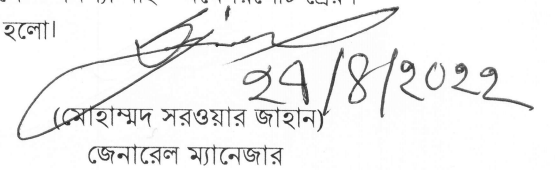 হলো।
২৭/৪/২০২২
(মোহাম্মদ সরওয়ার জাহান)
জেনারেল ম্যানেজার